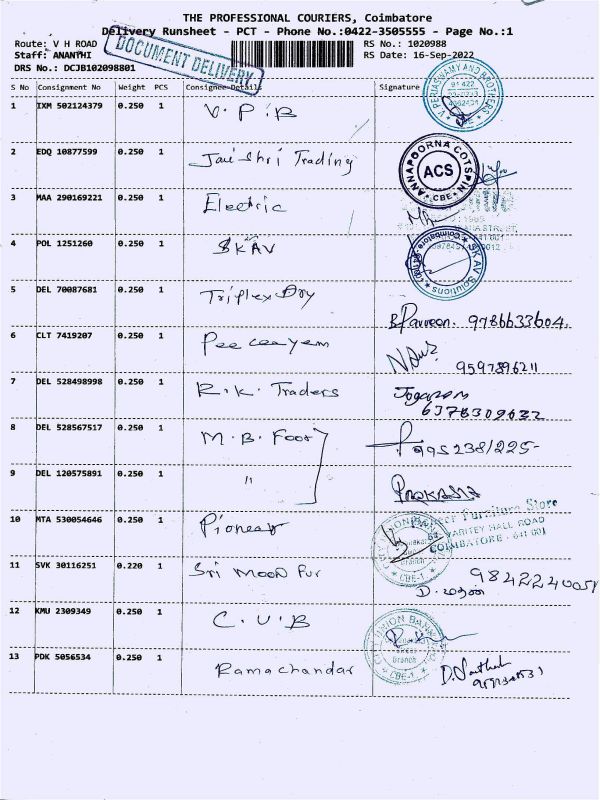 THE PROFESSIONAL COURIERS, Coimbatore
Delivery Runsheet - PCT - Phone No.:0422-3505555 - Page No.:1
Route: V H ROAD
RS No.: 1020988
Staff: ANANTHI
RS Date: 16-Sep-2022
DRS No.: DCJB102098801
DOCUMENT DELIVERY
S No Consignment No Weight PCS Consignee Details Signature
V. PERIASWAMY AND BROTHERS
1 IXM 502124379 0.250 1 V.P.B
2 EDQ 10877599 0.250 1 Jai Shri Trading
ANNAPOORNA COTSPIN
ACS
CBE
3 MAA 290169221 0.250 1 Electric
4 POL 1251260 0.250 1 SKAV
SKAV Solutions
Coimbatore
5 DEL 70087681 0.250 1 Triplex Dry
B Parveen. 9786633604.
6 CLT 7419207 0.250 1 Pee ceeyem
9597896211
7 DEL 528498998 0.250 1 R.K. Traders
Jogaram
6378309632
8 DEL 528567517 0.250 1 M.B. Foot
9952381225-
9 DEL 120575891 0.250 1 "
PRAKASH
10 MTA 530054646 0.250 1 Pioneer
Furniture Store
VARITEY HALL ROAD
COIMBATORE - 641 001
UNION BANK
Branch
CBE-1
11 SVK 30116251 0.220 1 Sri Moon Fur
9842240058
12 KMU 2309349 0.250 1 C.U.B
UNION BANK
Branch
CBE-1
13 PDK 5056534 0.250 1 Ramachandar